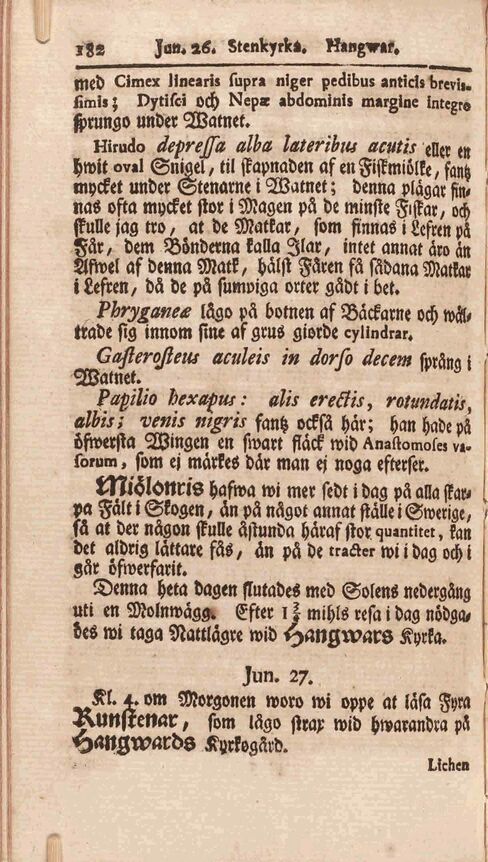 182 Jun. 26. Stenkyrka. Hangwar.
med Cimex linearis supra niger pedibus anticis brevis-
simis; Dytisci och Nepæ abdominis margine integro
sprungo under Watnet.
Hirudo depressa alba lateribus acutis eller en
hwit oval Snigel, til skapnaden af en Fiskmiölke, fantz
mycket under Stenarne i Watnet; denna plägar fin-
nas ofta mycket stor i Magen på de minste Fiskar, och
skulle jag tro, at de Matkar, som finnas i Lefren på
Får, dem Bönderna kalla Ilar, intet annat äro än
Afwel af denna Matk, hälst Fåren få sådana Matkar
i Lefren, då de på sumpiga orter gådt i bet.
Phryganeæ lågo på botnen af Bäckarne och wäl-
trade sig innom sine af grus giorde cylindrar.
Gasterosteus aculeis in dorso decem språng i
Watnet.
Papilio hexapus: alis erectis, rotundatis,
albis; venis nigris fantz också här; han hade på
öfwersta Wingen en swart fläck wid Anastomoses va-
sorum, som ej märkes där man ej noga efterser.
Miölonris hafwa wi mer sedt i dag på alla skar-
pa Fält i Skogen, än på något annat ställe i Swerige,
så at der någon skulle åstunda häraf stor quantitet, kan
det aldrig lättare fås, än på de tracter wi i dag och i
går öfwerfarit.
Denna heta dagen slutades med Solens nedergång
uti en Molnwägg. Efter 1 3/4 mihls resa i dag nödga-
des wi taga Nattlägre wid Hangwars Kyrka.
Jun. 27.
Kl. 4. om Morgonen woro wi oppe at läsa Fyra
Runstenar, som lågo strax wid hwarandra på
Hangwards Kyrkogård.
Lichen